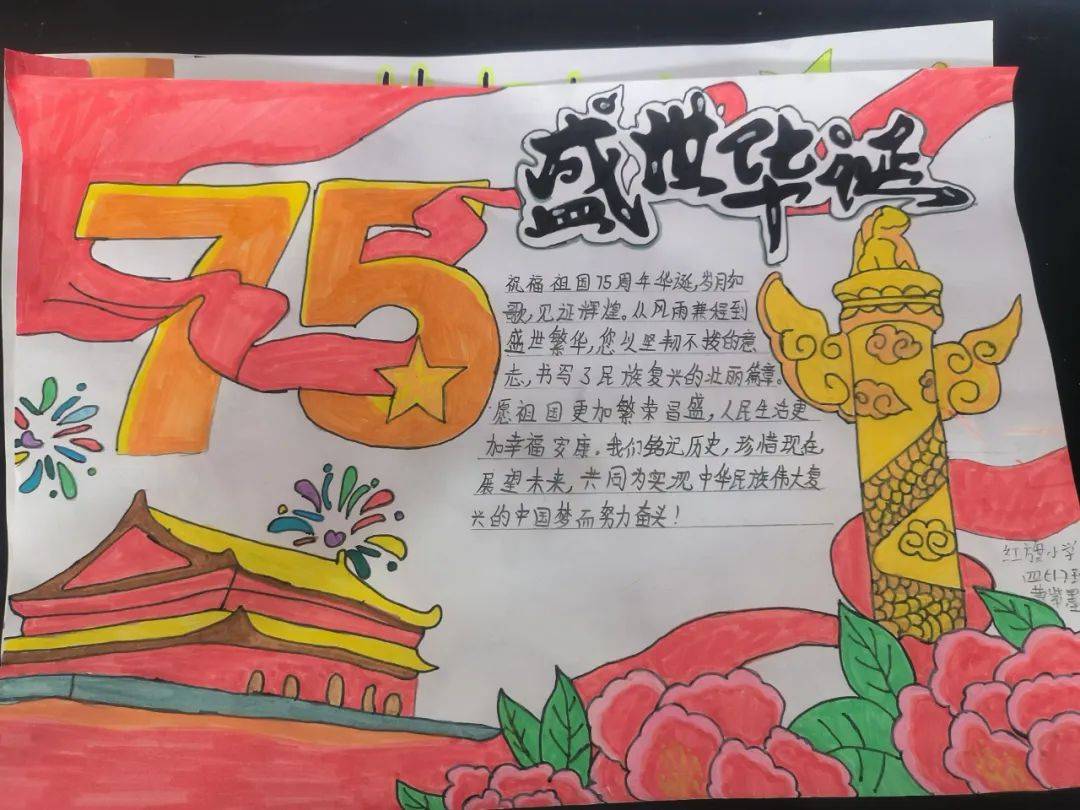 盛世华诞
75
祝福祖国75周年华诞,岁月如
歌,见证辉煌。从风雨兼程到
盛世繁华,您以坚韧不拔的意
志,书写了民族复兴的壮丽篇章。
愿祖国更加繁荣昌盛,人民生活更
加幸福安康。我们铭记历史,珍惜现在,
展望未来,共同为实现中华民族伟大复
兴的中国梦而努力奋斗!
红旗小学
四(1)班